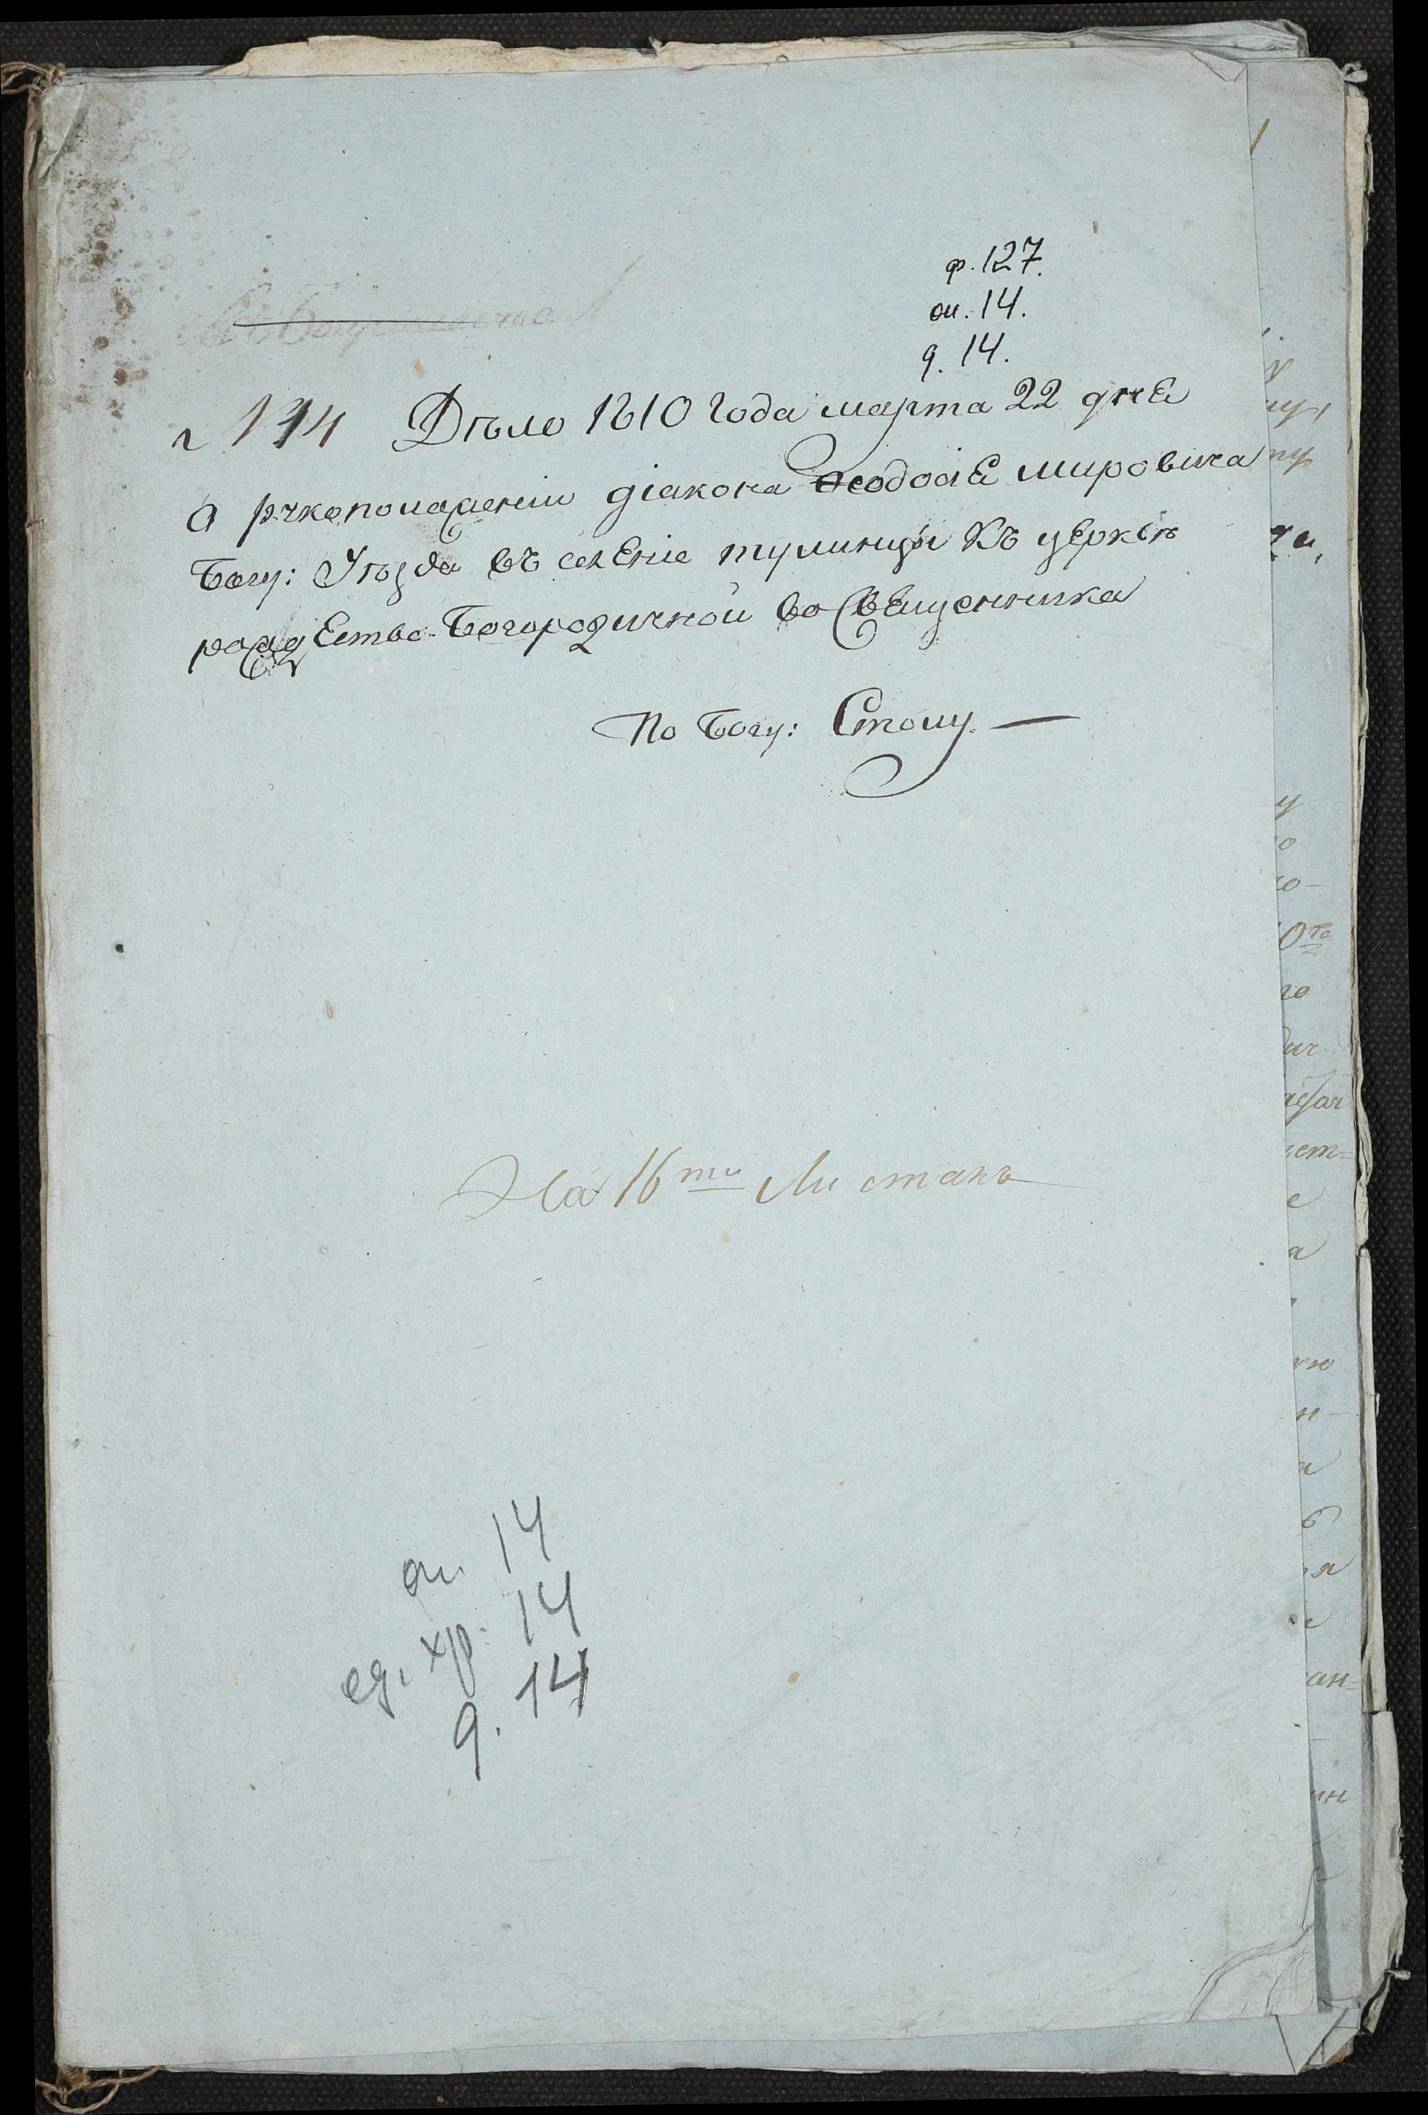 ф. 127.
оп. 14.
д. 14.
Дѣло 1810 Года марта 22 дня
О рукоположеніи діакона Ѳеодосіе мировича
Богу: Уѣзда въ селеніе тулинцы Къ церквѣ
рождество-Богородичной во Священника
По Богу: Столу. —
На 16ти Листахъ
оп. 14
ед. хр. 14
д. 14